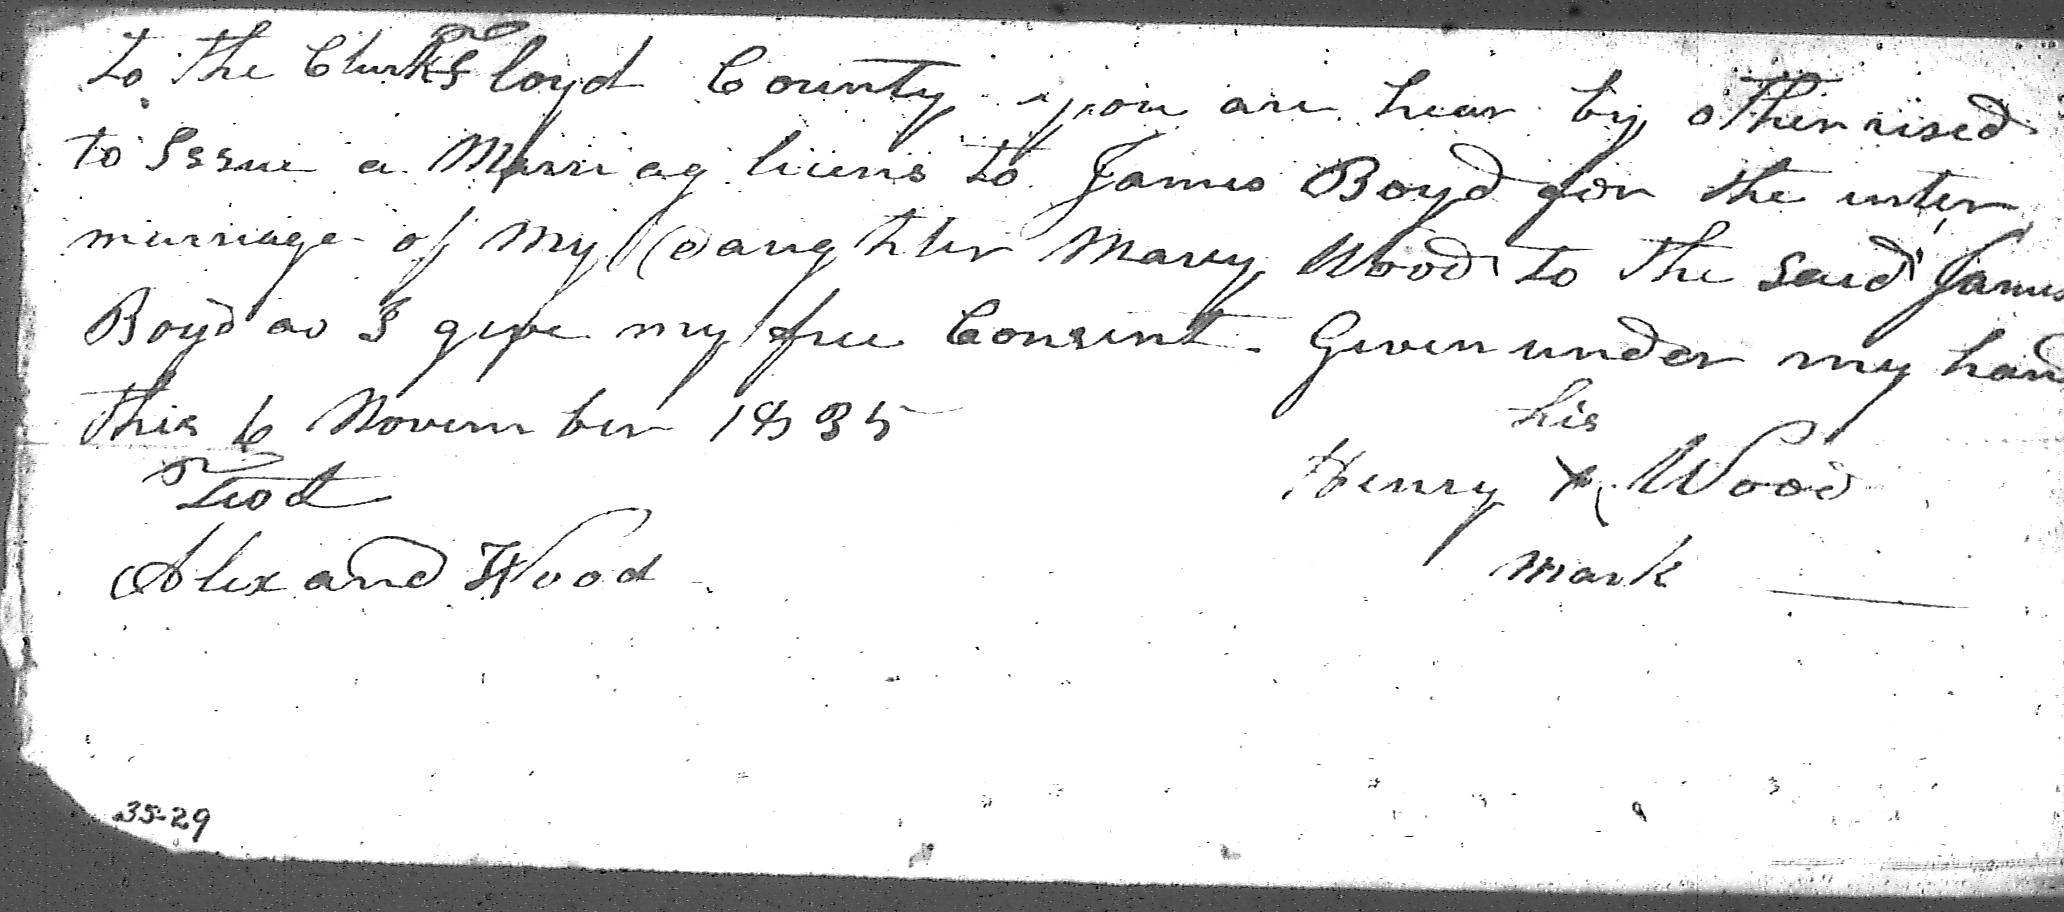 to the Clurk Floyd County you are hear by otherrised
to Issue a Marriag liiens to James Boyd for the inter
marriage of My Daughter Mary Wood to the said James
Boyd as I give my free Consent - Given under my hand
this 6 November 1835
his
Henry X Wood
mark
Test
Alexand Wood
35-29